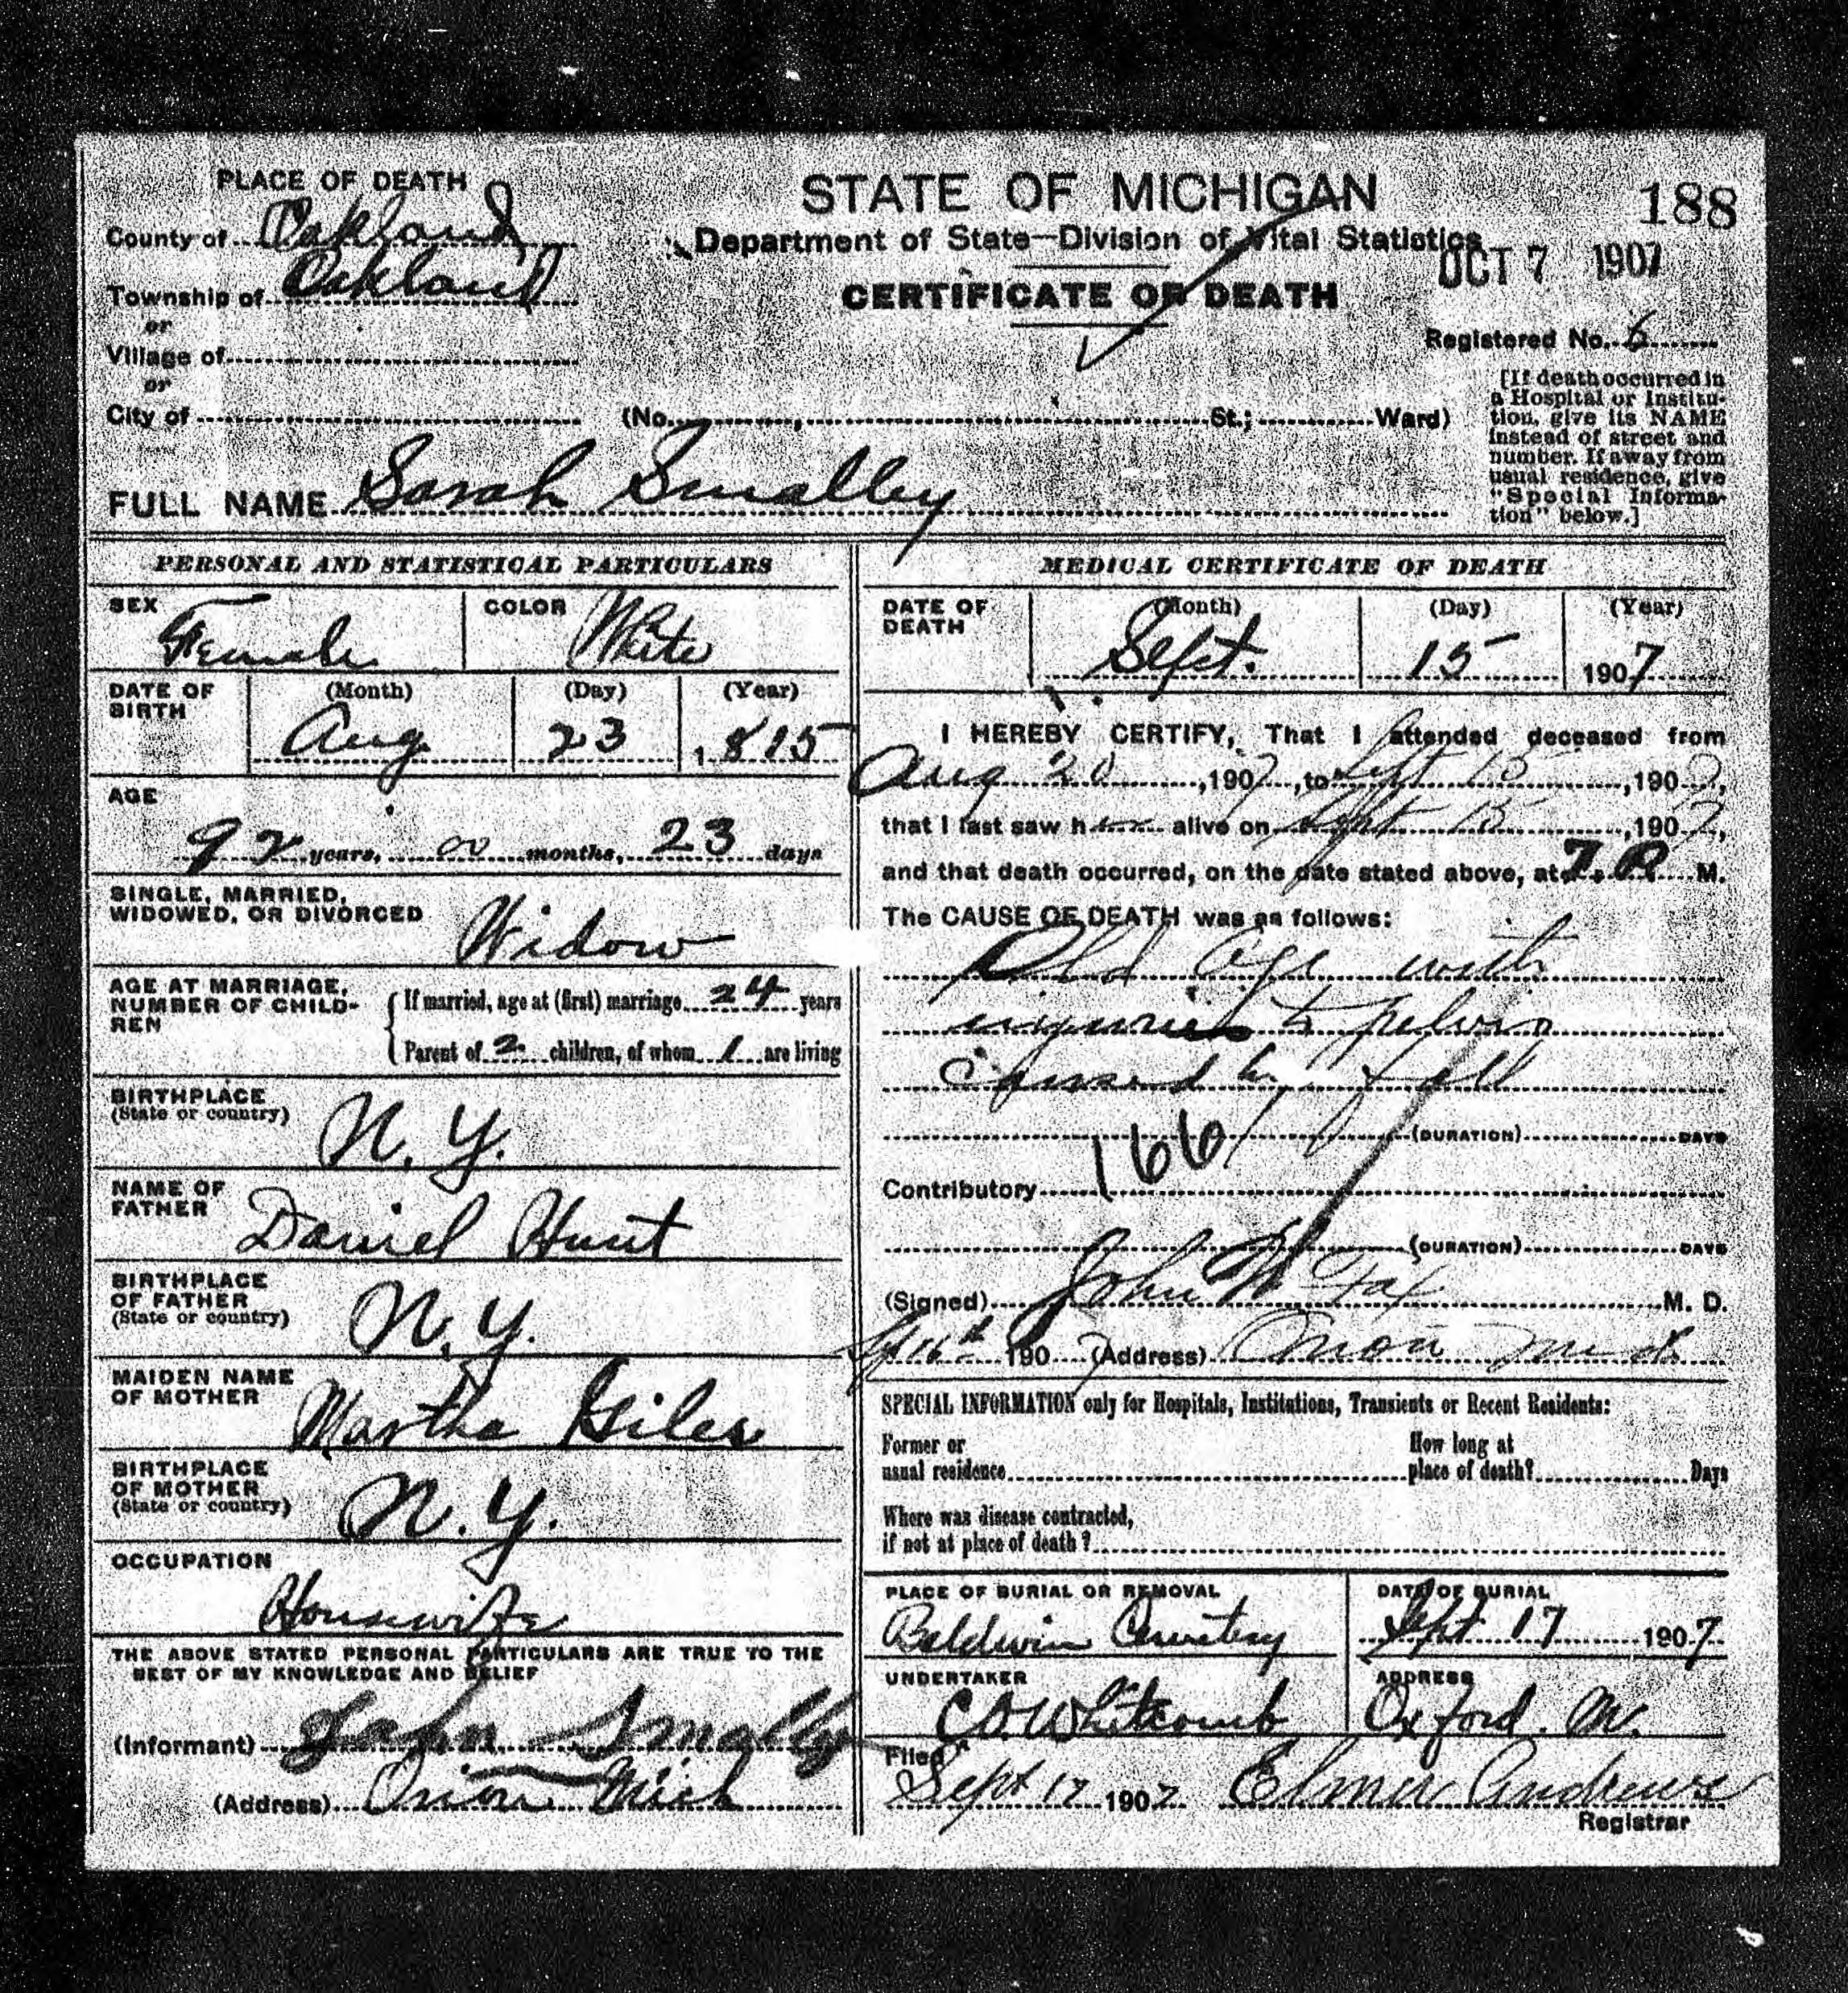 PLACE OF DEATH
STATE OF MICHIGAN
188
County of Oakland
Department of State—Division of Vital Statistics
OCT 7 1907
Township of Oakland
CERTIFICATE OF DEATH
or
Village of
Registered No. 6
or
City of (No. , St.; Ward)
[If death occurred in
a Hospital or Institu-
tion, give its NAME
instead of street and
number. If away from
usual residence, give
"Special Informa-
tion" below.]
FULL NAME Sarah Smalley
PERSONAL AND STATISTICAL PARTICULARS
SEX
Female
COLOR
White
DATE OF
BIRTH
(Month) (Day) (Year)
Aug 23 1815
AGE
92 years, 00 months, 23 days
SINGLE, MARRIED,
WIDOWED, OR DIVORCED
Widow
AGE AT MARRIAGE,
NUMBER OF CHILD-
REN
If married, age at (first) marriage 24 years
Parent of 2 children, of whom 1 are living
BIRTHPLACE
(State or country)
N. Y.
NAME OF
FATHER
Daniel Hunt
BIRTHPLACE
OF FATHER
(State or country)
N. Y.
MAIDEN NAME
OF MOTHER
Martha Giles
BIRTHPLACE
OF MOTHER
(State or country)
N. Y.
OCCUPATION
Housewife
THE ABOVE STATED PERSONAL PARTICULARS ARE TRUE TO THE
BEST OF MY KNOWLEDGE AND BELIEF
(Informant) John Smally
(Address) Orion Mich
MEDICAL CERTIFICATE OF DEATH
DATE OF
DEATH
(Month) (Day) (Year)
Sept. 15 1907
I HEREBY CERTIFY, That I attended deceased from
Aug 20, 1907, to Sept 15, 1907,
that I last saw her alive on Sept 15, 1907,
and that death occurred, on the date stated above, at 7 P. M.
The CAUSE OF DEATH was as follows:
Old Age with
injuries to pelvis
caused by fall
166 (DURATION) DAYS
Contributory
(DURATION) DAYS
(Signed) John W Fox M. D.
Sep 16th 1907 (Address) Orion Mich
SPECIAL INFORMATION only for Hospitals, Institutions, Transients or Recent Residents:
Former or
usual residence
How long at
place of death? Days
Where was disease contracted,
if not at place of death?
PLACE OF BURIAL OR REMOVAL
Baldwin Cemetery
DATE OF BURIAL
Sept 17 1907
UNDERTAKER
C D Whitcomb
ADDRESS
Oxford. M.
Filed
Sept 17 1907 Elmer Andrews
Registrar